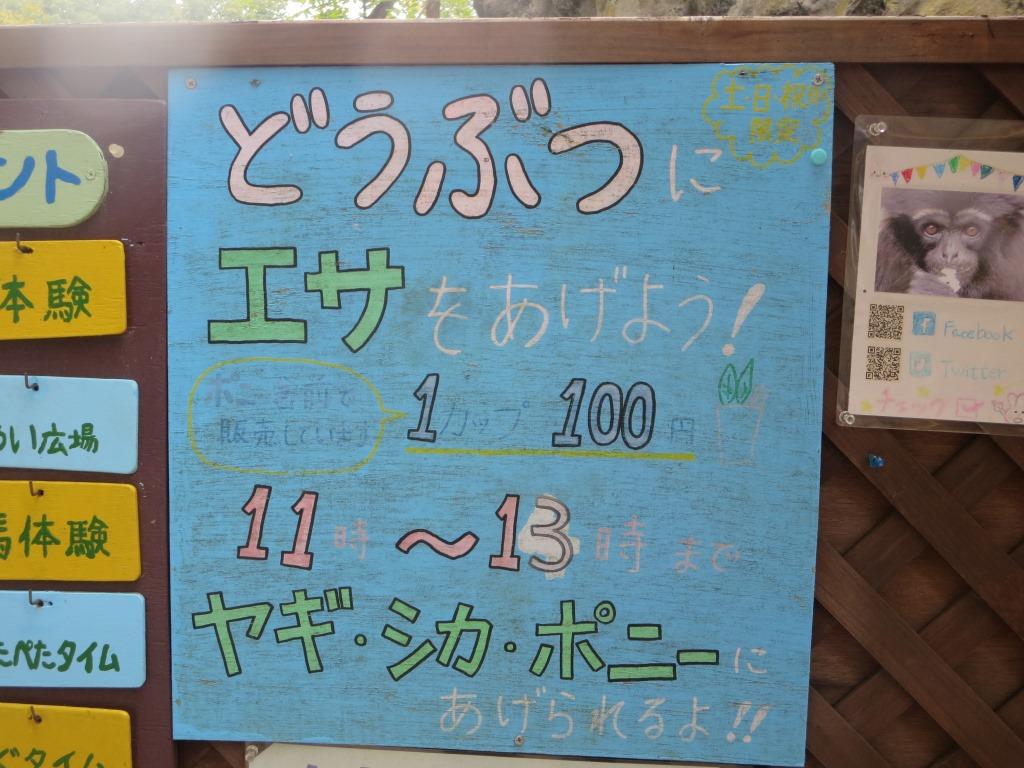 ント
体験
い広場
体験
たぺたタイム
タイム
土・日・祝の
限定
どうぶつに
エサをあげよう!
ポニー舎前で
販売しています
1カップ 100円
11時～13時まで
ヤギ・シカ・ポニーに
あげられるよ!!
Facebook
Twitter
チェック